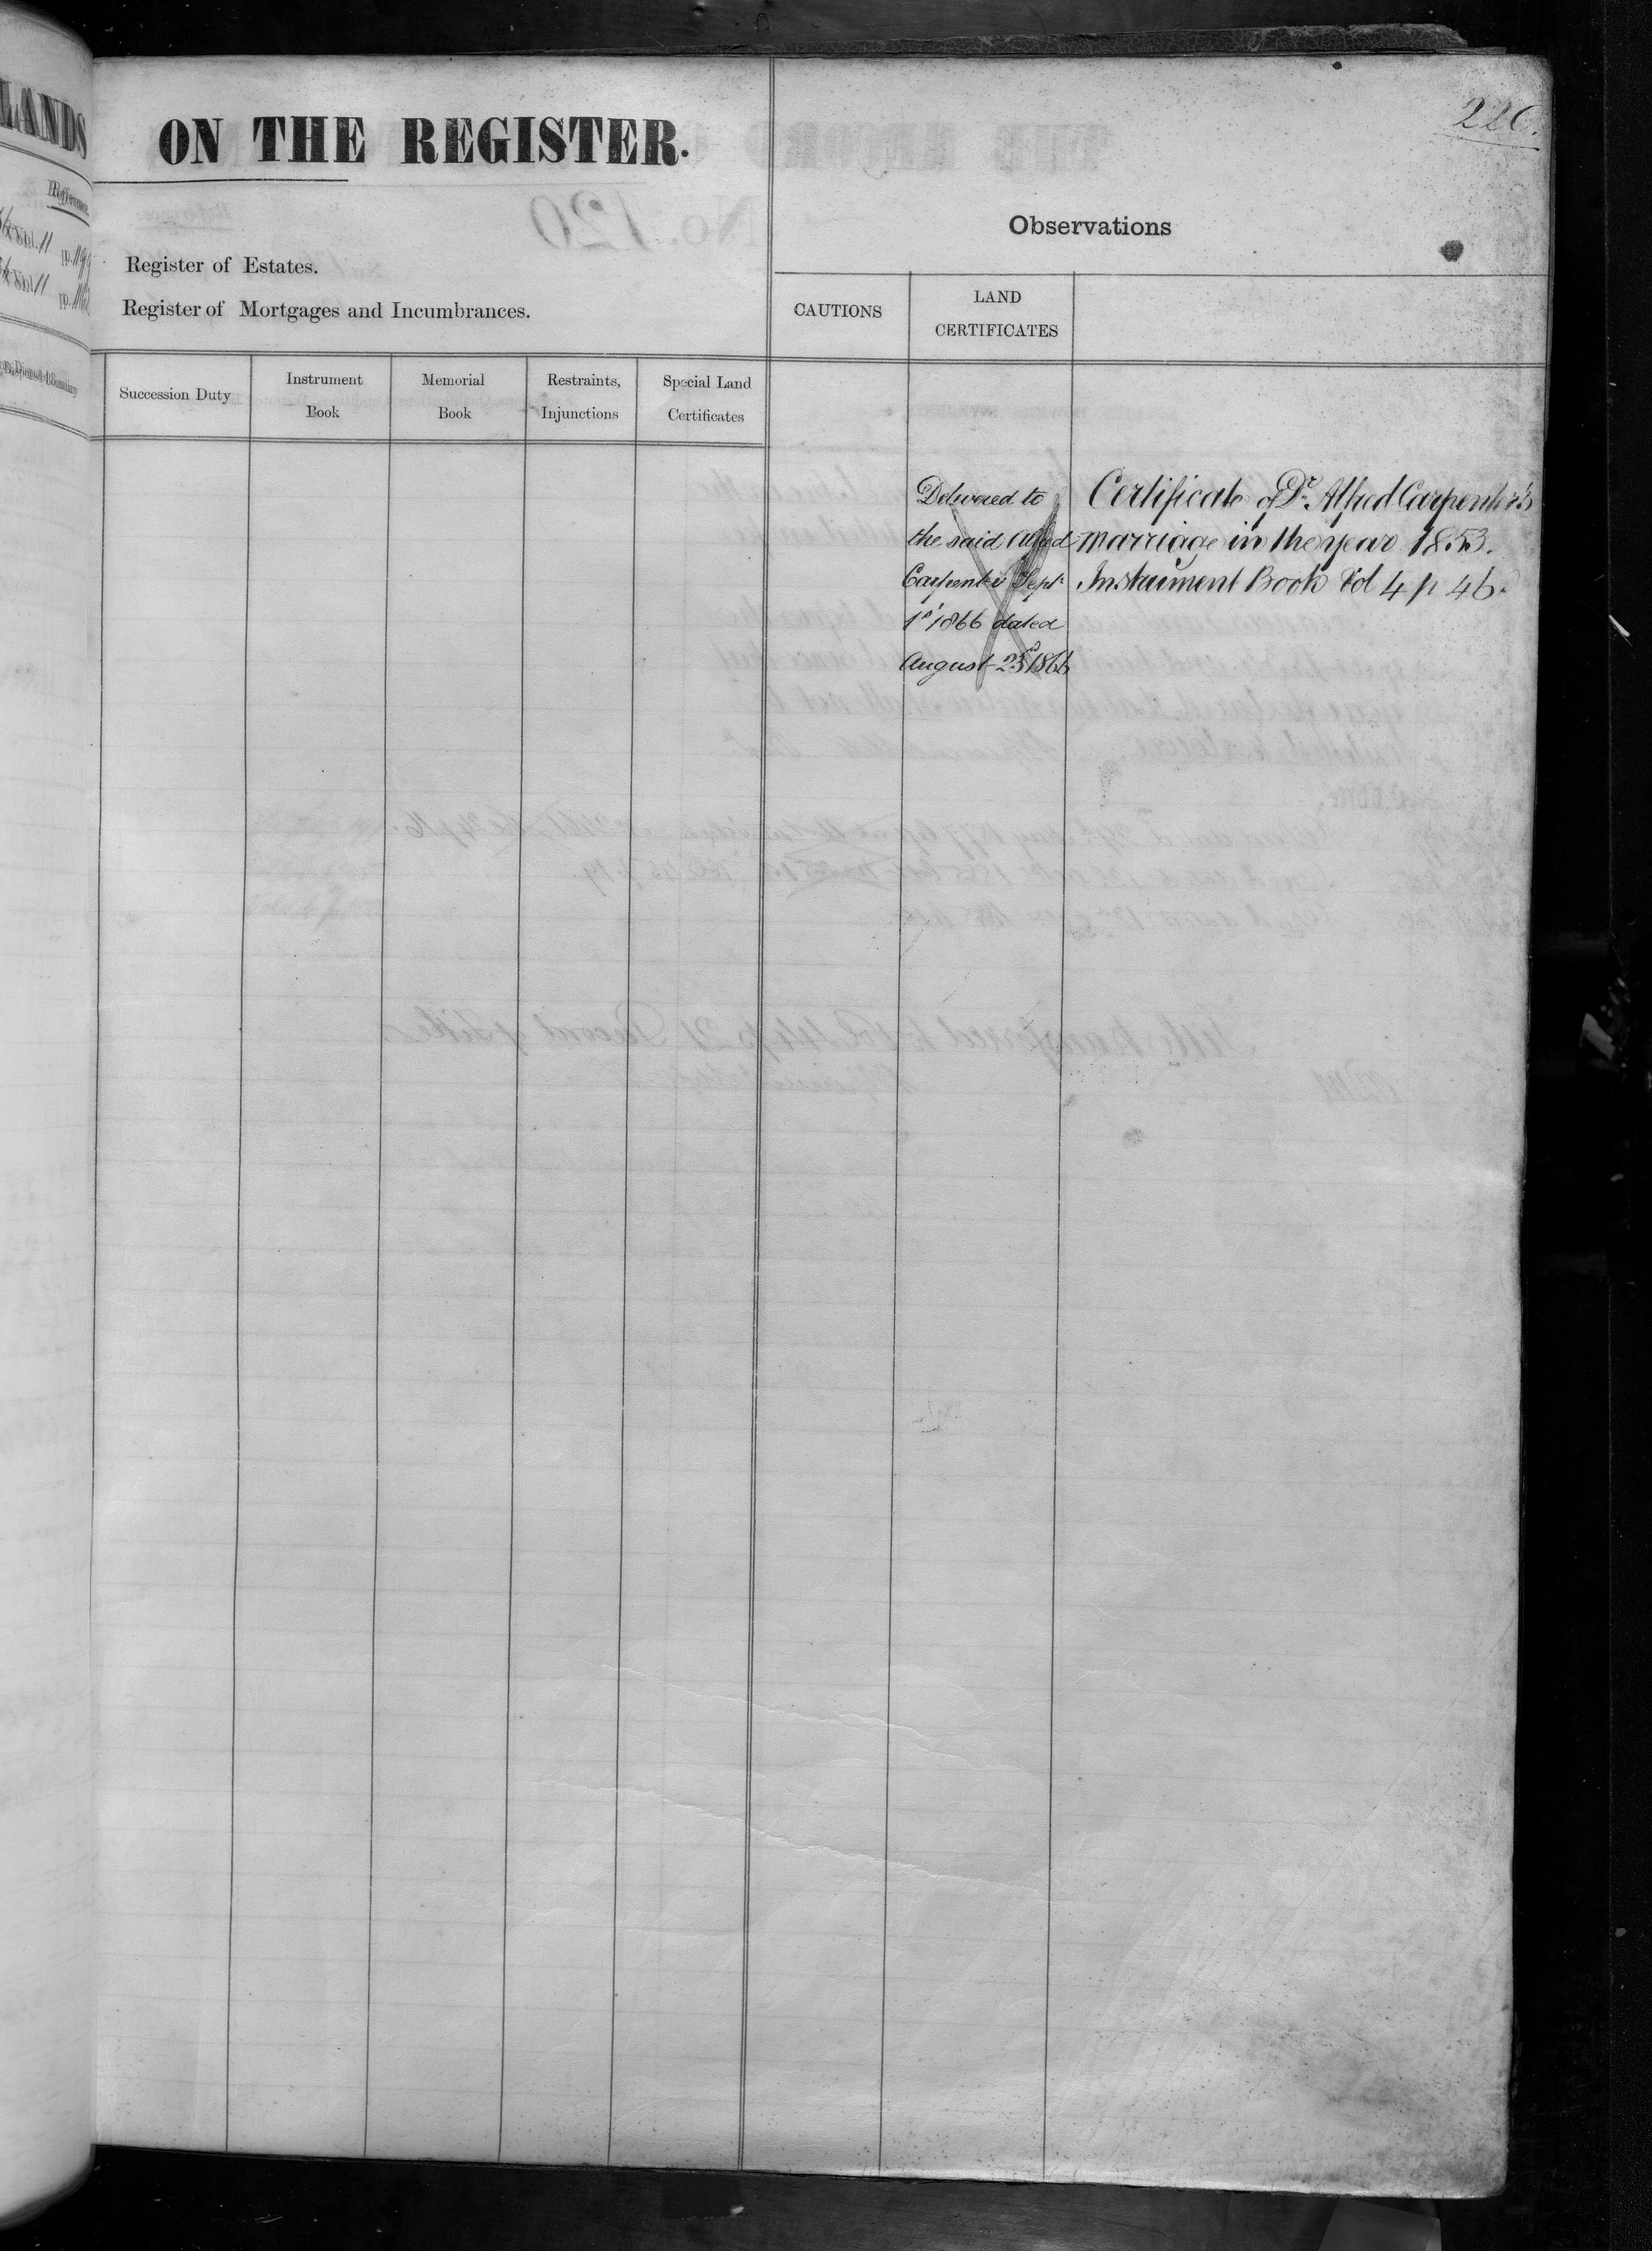 LANDS
226.
ON THE REGISTER.
Observations
Register of Estates.
Register of Mortgages and Incumbrances.
CAUTIONS
LAND
CERTIFICATES
Succession Duty
Instrument
Book
Memorial
Book
Restraints,
Injunctions
Special Land
Certificates
Delivered to
the said Alfred
Carpenter Sept
1st 1866 dated
August 23d 1866
Certificate of Dr. Alfred Carpenter's
marriage in the year 1853.
Instrument Book Vol 4 p 46.